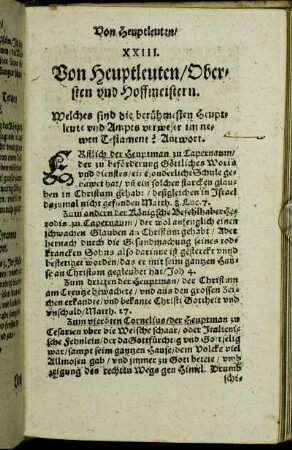 Von Heuptleuten/
XXIII.
Von Heuptleuten/Ober-
sten vnd Hoffmeistern.
Welches sind die berühmesten Heupt-
leute vnd Ampts verweser im ne-
wen Testament? Antwort.
Erstlich der Heuptman zu Capernaum/
der zu beförderung Göttliches Worts
vnd dienstes/ eine sonderliche Schule ge-
bawet hat/ vñ ein solchen starcken glau-
ben in Christum gehabt/ deßgleichen in Israel
dazumal nicht gefunden Matth. 8. Luc. 7.
Zum andern der Königsche Befehlhaber He-
rodis zu Capernaum/ der wol anfenglich einen
schwachen Glauben an Christum gehabt/ Aber
hernach durch die Gesundmachung seines tods
krancken Sohns also darinne ist gestercket vnnd
bestetiget worden/ das er mit seim gantzen Hause
an Christum gegleubet hat/ Joh 4.
Zum dritten der Heuptman/ der Christum
am Creutze bewachte/ vnd aus den grossen Zei-
chen erkandte/ vnd bekante Christi Gottheit vnd
vnschuld/ Matth. 27.
Zum vierdten Cornelius/ der Heuptman zu
Cesarien vber die Welsche schaar/ oder Italieni-
sche Fehnlein/ der da Gottfürchtig vnd Gottselig
war/ sampt seim gantzen Hause/ dem Volcke viel
Allmosen gab/ vnd jmmer zu Gott betete/ vmb
zeigung des rechten Wegs gen Himel. Drumb
schi-